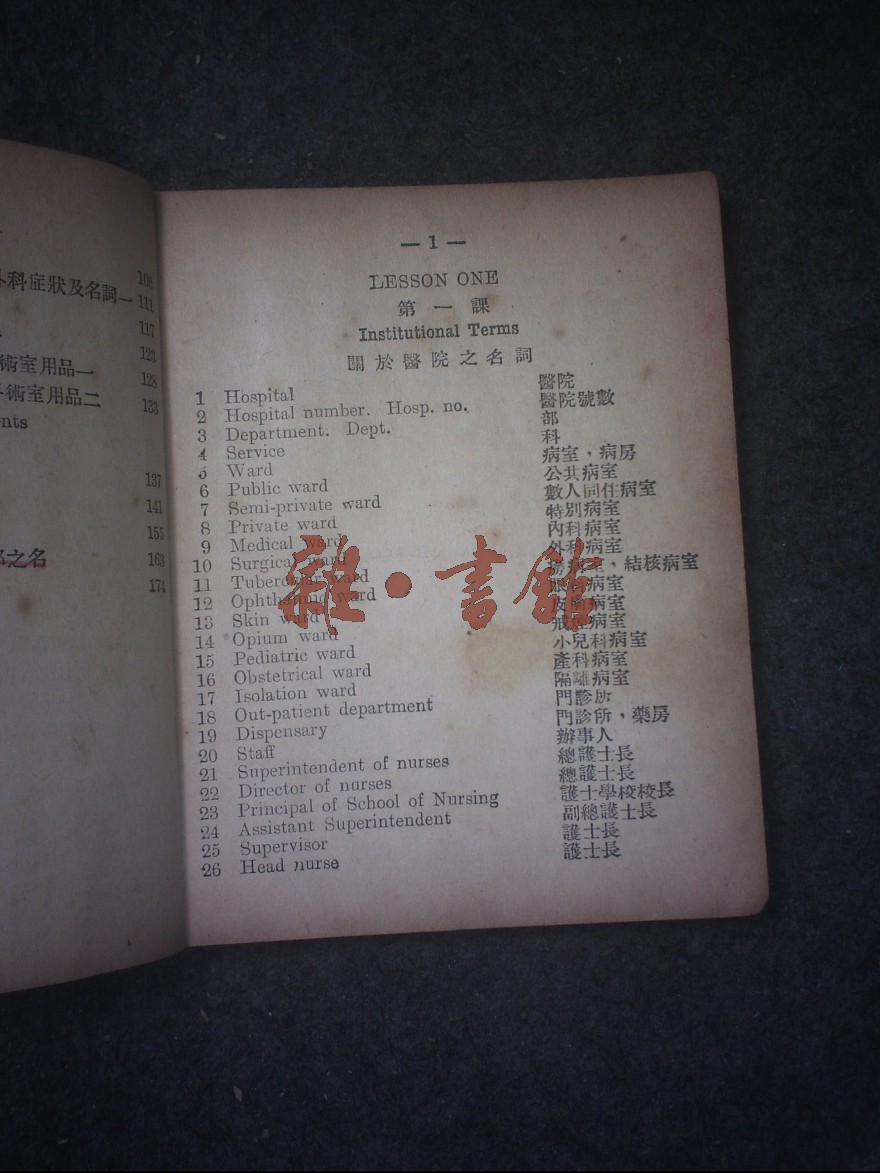 外科症狀及名詞一
108
111
117
術室用品一
123
128
手術室用品二
133
nts
137
141
155
部之名
163
174
— 1 —
LESSON ONE
第一課
Institutional Terms
關於醫院之名詞
1 Hospital 醫院
2 Hospital number. Hosp. no. 醫院號數
3 Department. Dept. 部
4 Service 科
5 Ward 病室，病房
6 Public ward 公共病室
7 Semi-private ward 數人同住病室
8 Private ward 特別病室
9 Medical ward 內科病室
10 Surgical ward 外科病室
11 Tubercular ward 癆病室，結核病室
12 Ophthalmic ward 眼科病室
13 Skin ward 皮膚病室
14 Opium ward 戒煙病室
15 Pediatric ward 小兒科病室
16 Obstetrical ward 產科病室
17 Isolation ward 隔離病室
18 Out-patient department 門診所
19 Dispensary 門診所，藥房
20 Staff 辦事人
21 Superintendent of nurses 總護士長
22 Director of nurses 總護士長
23 Principal of School of Nursing 護士學校校長
24 Assistant Superintendent 副總護士長
25 Supervisor 護士長
26 Head nurse 護士長
雜·書館